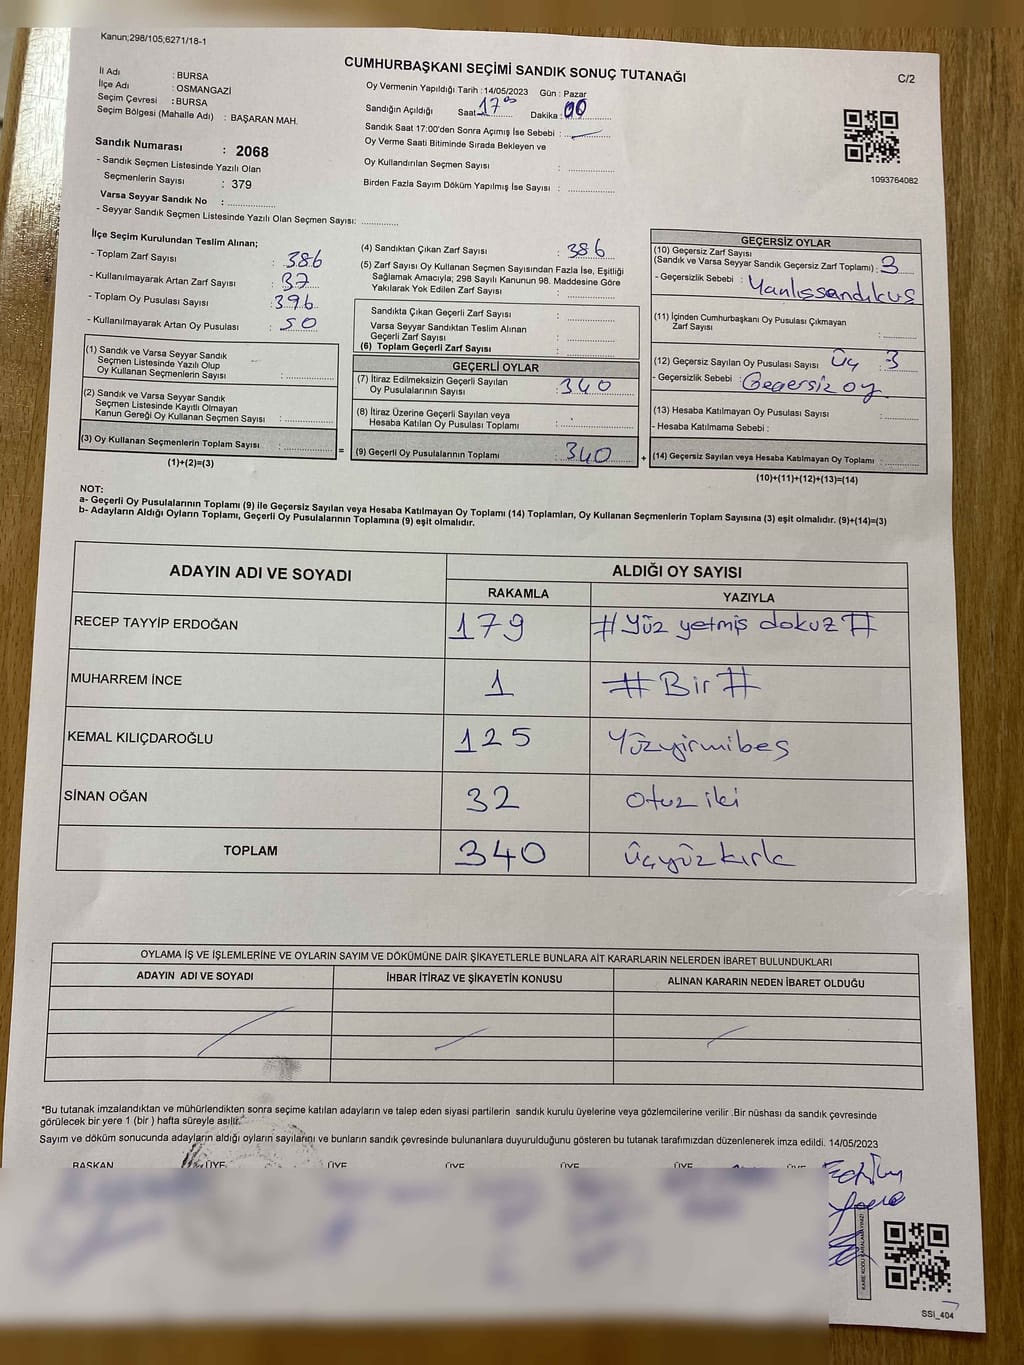 Kanun;298/105;6271/18-1
CUMHURBAŞKANI SEÇİMİ SANDIK SONUÇ TUTANAĞI
C/2
İl Adı : BURSA
İlçe Adı : OSMANGAZİ
Seçim Çevresi : BURSA
Seçim Bölgesi (Mahalle Adı) : BAŞARAN MAH.
Sandık Numarası : 2068
- Sandık Seçmen Listesinde Yazılı Olan
Seçmenlerin Sayısı : 379
Varsa Seyyar Sandık No :
- Seyyar Sandık Seçmen Listesinde Yazılı Olan Seçmen Sayısı:
Oy Vermenin Yapıldığı Tarih : 14/05/2023 Gün : Pazar
Sandığın Açıldığı Saat 17 00 Dakika : 00
Sandık Saat 17:00'den Sonra Açımış İse Sebebi :
Oy Verme Saati Bitiminde Sırada Bekleyen ve
Oy Kullandırılan Seçmen Sayısı :
Birden Fazla Sayım Döküm Yapılmış İse Sayısı :
1093764082
İlçe Seçim Kurulundan Teslim Alınan;
- Toplam Zarf Sayısı : 386
- Kullanılmayarak Artan Zarf Sayısı : 37
- Toplam Oy Pusulası Sayısı : 396
- Kullanılmayarak Artan Oy Pusulası : 50
(1) Sandık ve Varsa Seyyar Sandık
Seçmen Listesinde Yazılı Olup
Oy Kullanan Seçmenlerin Sayısı :
(2) Sandık ve Varsa Seyyar Sandık
Seçmen Listesinde Kayıtlı Olmayan
Kanun Gereği Oy Kullanan Seçmen Sayısı :
(3) Oy Kullanan Seçmenlerin Toplam Sayısı :
(1)+(2)=(3)
=
(4) Sandıktan Çıkan Zarf Sayısı : 386
(5) Zarf Sayısı Oy Kullanan Seçmen Sayısından Fazla İse, Eşitliği
Sağlamak Amacıyla; 298 Sayılı Kanunun 98. Maddesine Göre
Yakılarak Yok Edilen Zarf Sayısı :
Sandıkta Çıkan Geçerli Zarf Sayısı :
Varsa Seyyar Sandıktan Teslim Alınan
Geçerli Zarf Sayısı :
(6) Toplam Geçerli Zarf Sayısı :
GEÇERLİ OYLAR
(7) İtiraz Edilmeksizin Geçerli Sayılan
Oy Pusulalarının Sayısı : 340
(8) İtiraz Üzerine Geçerli Sayılan veya
Hesaba Katılan Oy Pusulası Toplamı :
(9) Geçerli Oy Pusulalarının Toplamı : 340
+
GEÇERSİZ OYLAR
(10) Geçersiz Zarf Sayısı
(Sandık ve Varsa Seyyar Sandık Geçersiz Zarf Toplamı) : 3
- Geçersizlik Sebebi : Yanlıssandıkus
(11) İçinden Cumhurbaşkanı Oy Pusulası Çıkmayan
Zarf Sayısı :
(12) Geçersiz Sayılan Oy Pusulası Sayısı Üç : 3
- Geçersizlik Sebebi : Geçersiz oy
(13) Hesaba Katılmayan Oy Pusulası Sayısı :
- Hesaba Katılmama Sebebi :
(14) Geçersiz Sayılan veya Hesaba Katılmayan Oy Toplamı :
(10)+(11)+(12)+(13)=(14)
NOT:
a- Geçerli Oy Pusulalarının Toplamı (9) ile Geçersiz Sayılan veya Hesaba Katılmayan Oy Toplamı (14) Toplamları, Oy Kullanan Seçmenlerin Toplam Sayısına (3) eşit olmalıdır. (9)+(14)=(3)
b- Adayların Aldığı Oyların Toplamı, Geçerli Oy Pusulalarının Toplamına (9) eşit olmalıdır.
ADAYIN ADI VE SOYADI ALDIĞI OY SAYISI
RAKAMLA YAZIYLA
RECEP TAYYİP ERDOĞAN 179 # Yüz yetmiş dokuz #
MUHARREM İNCE 1 # Bir #
KEMAL KILIÇDAROĞLU 125 Yüzyirmibeş
SİNAN OĞAN 32 otuz iki
TOPLAM 340 üçyüzkırk
OYLAMA İŞ VE İŞLEMLERİNE VE OYLARIN SAYIM VE DÖKÜMÜNE DAİR ŞİKAYETLERLE BUNLARA AİT KARARLARIN NELERDEN İBARET BULUNDUKLARI
ADAYIN ADI VE SOYADI İHBAR İTİRAZ VE ŞİKAYETİN KONUSU ALINAN KARARIN NEDEN İBARET OLDUĞU
*Bu tutanak imzalandıktan ve mühürlendikten sonra seçime katılan adayların ve talep eden siyasi partilerin sandık kurulu üyelerine veya gözlemcilerine verilir .Bir nüshası da sandık çevresinde
görülecek bir yere 1 (bir ) hafta süreyle asılır.
Sayım ve döküm sonucunda adayların aldığı oyların sayılarını ve bunların sandık çevresinde bulunanlara duyurulduğunu gösteren bu tutanak tarafımızdan düzenlenerek imza edildi. 14/05/2023
BAŞKAN ÜYE ÜYE ÜYE ÜYE ÜYE ÜYE
SSİ_404